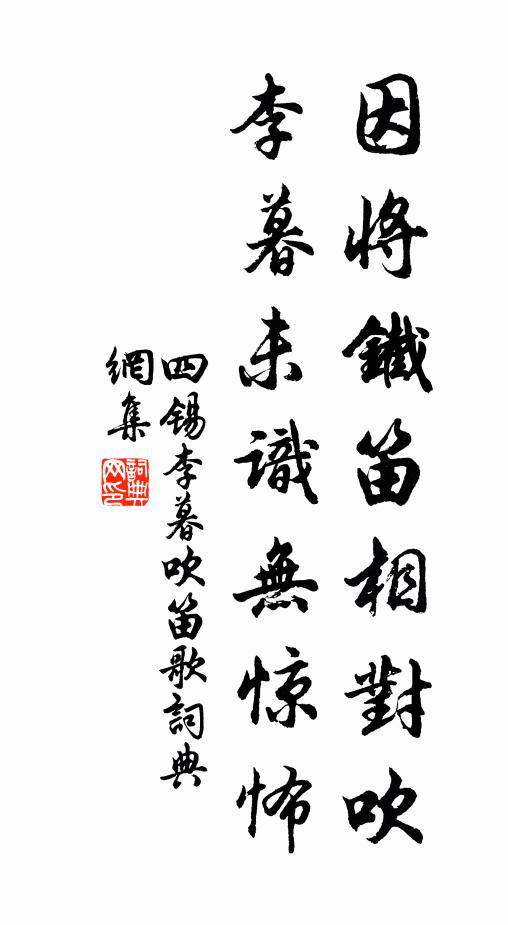 因將鐵笛相對吹
李暮未識無惊怖
四锡李暮吹笛歌詞典
網集
詞典
网印